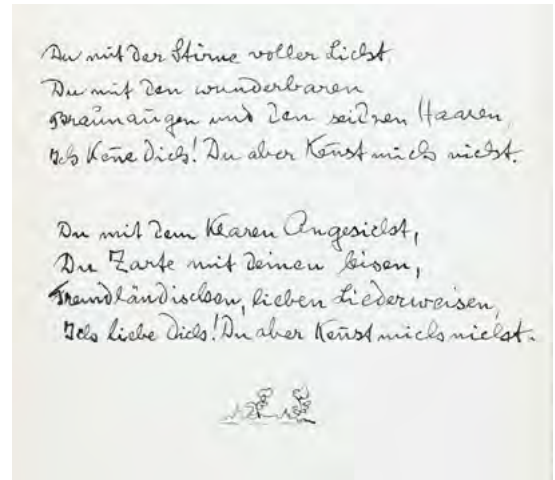 Du mit der Stirne voller Licht,
Du mit den wunderbaren
Braunaugen und den seidnen Haaren,
Ich kenne Dich! Du aber kennst mich nicht.
Du mit dem klaren Angesicht,
Du Zarte mit deinen leisen,
Fremdländischen, lieben Liederweisen,
Ich liebe Dich! Du aber kennst mich nicht.